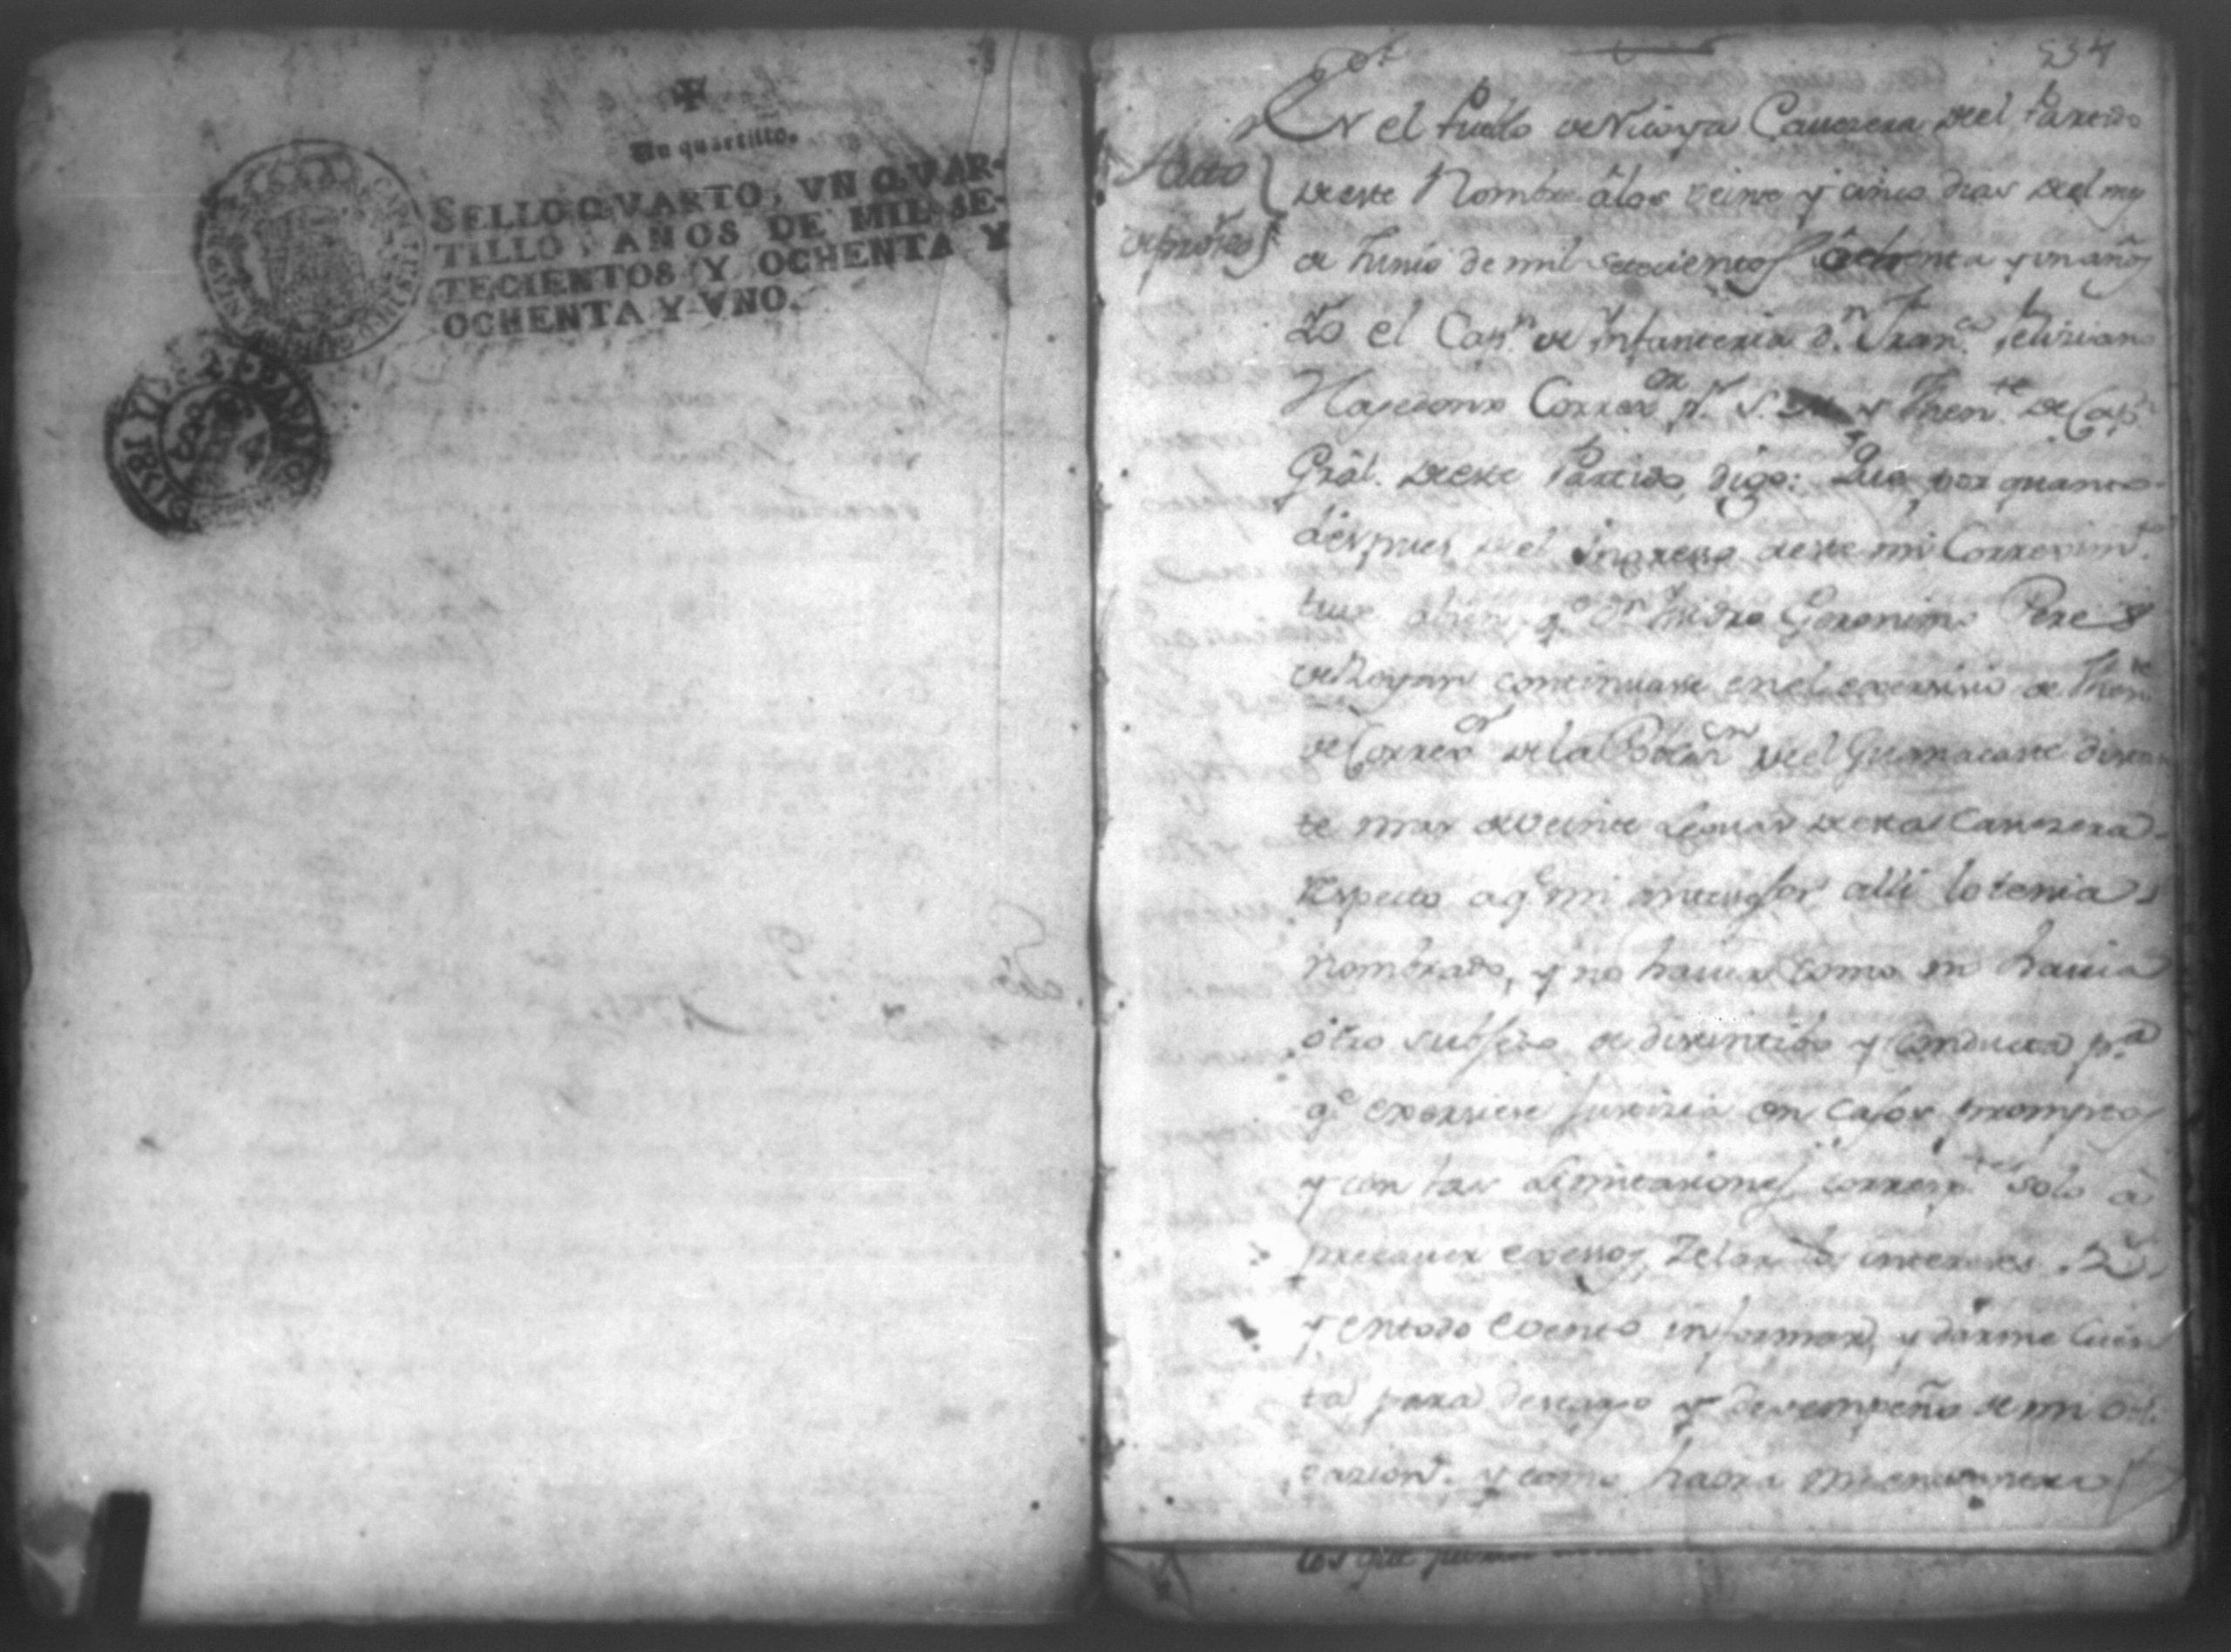 Un quartillo.
SELLO QVARTO, VN QVAR-
TILLO, AÑOS DE MIL SE-
TECIENTOS Y OCHENTA Y
OCHENTA Y VNO.
234
En el Pueblo de Nicoya Cavezera del Partido
Auto
de este Nombre â los veinte y cinco dias del mes
de Junio de mil setecientos ôchenta y un años
Yo el Capn. de Infanteria dn. Franco. Feliziano
Hagedorn Corregor. pr. S. M. y Thente. de Capn.
Gràl. de este Partido, digo: Que por quanto
después del ingreso de este mi Corregimto.
tuve abien, qe. Dn. Isidro Geronimo Perez
continuase en el exersisio de Thente.
de Corregor. de la Poblazn. del Guanacaste distan
te mas de veinte Leguas de esta Cavezera
respecto a qe. mi antecesor alli lo tenia
nombrado, y no haver como no havia
otro subjeto de distintibo y conducta pa.
qe. exersiese justizia en casos promptos
y con las limitaziones correspte. solo â
precaver exsesos, Zelar los intereses Rs.
y en todo evento informar, y darme cuen
ta para descargo y desempeño de mi obli
gazion. y como haora
los que